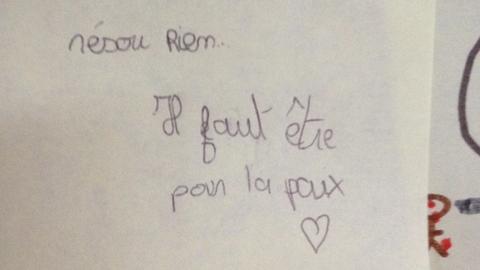 résou Rien..
Il faut être
pour la paix
♡